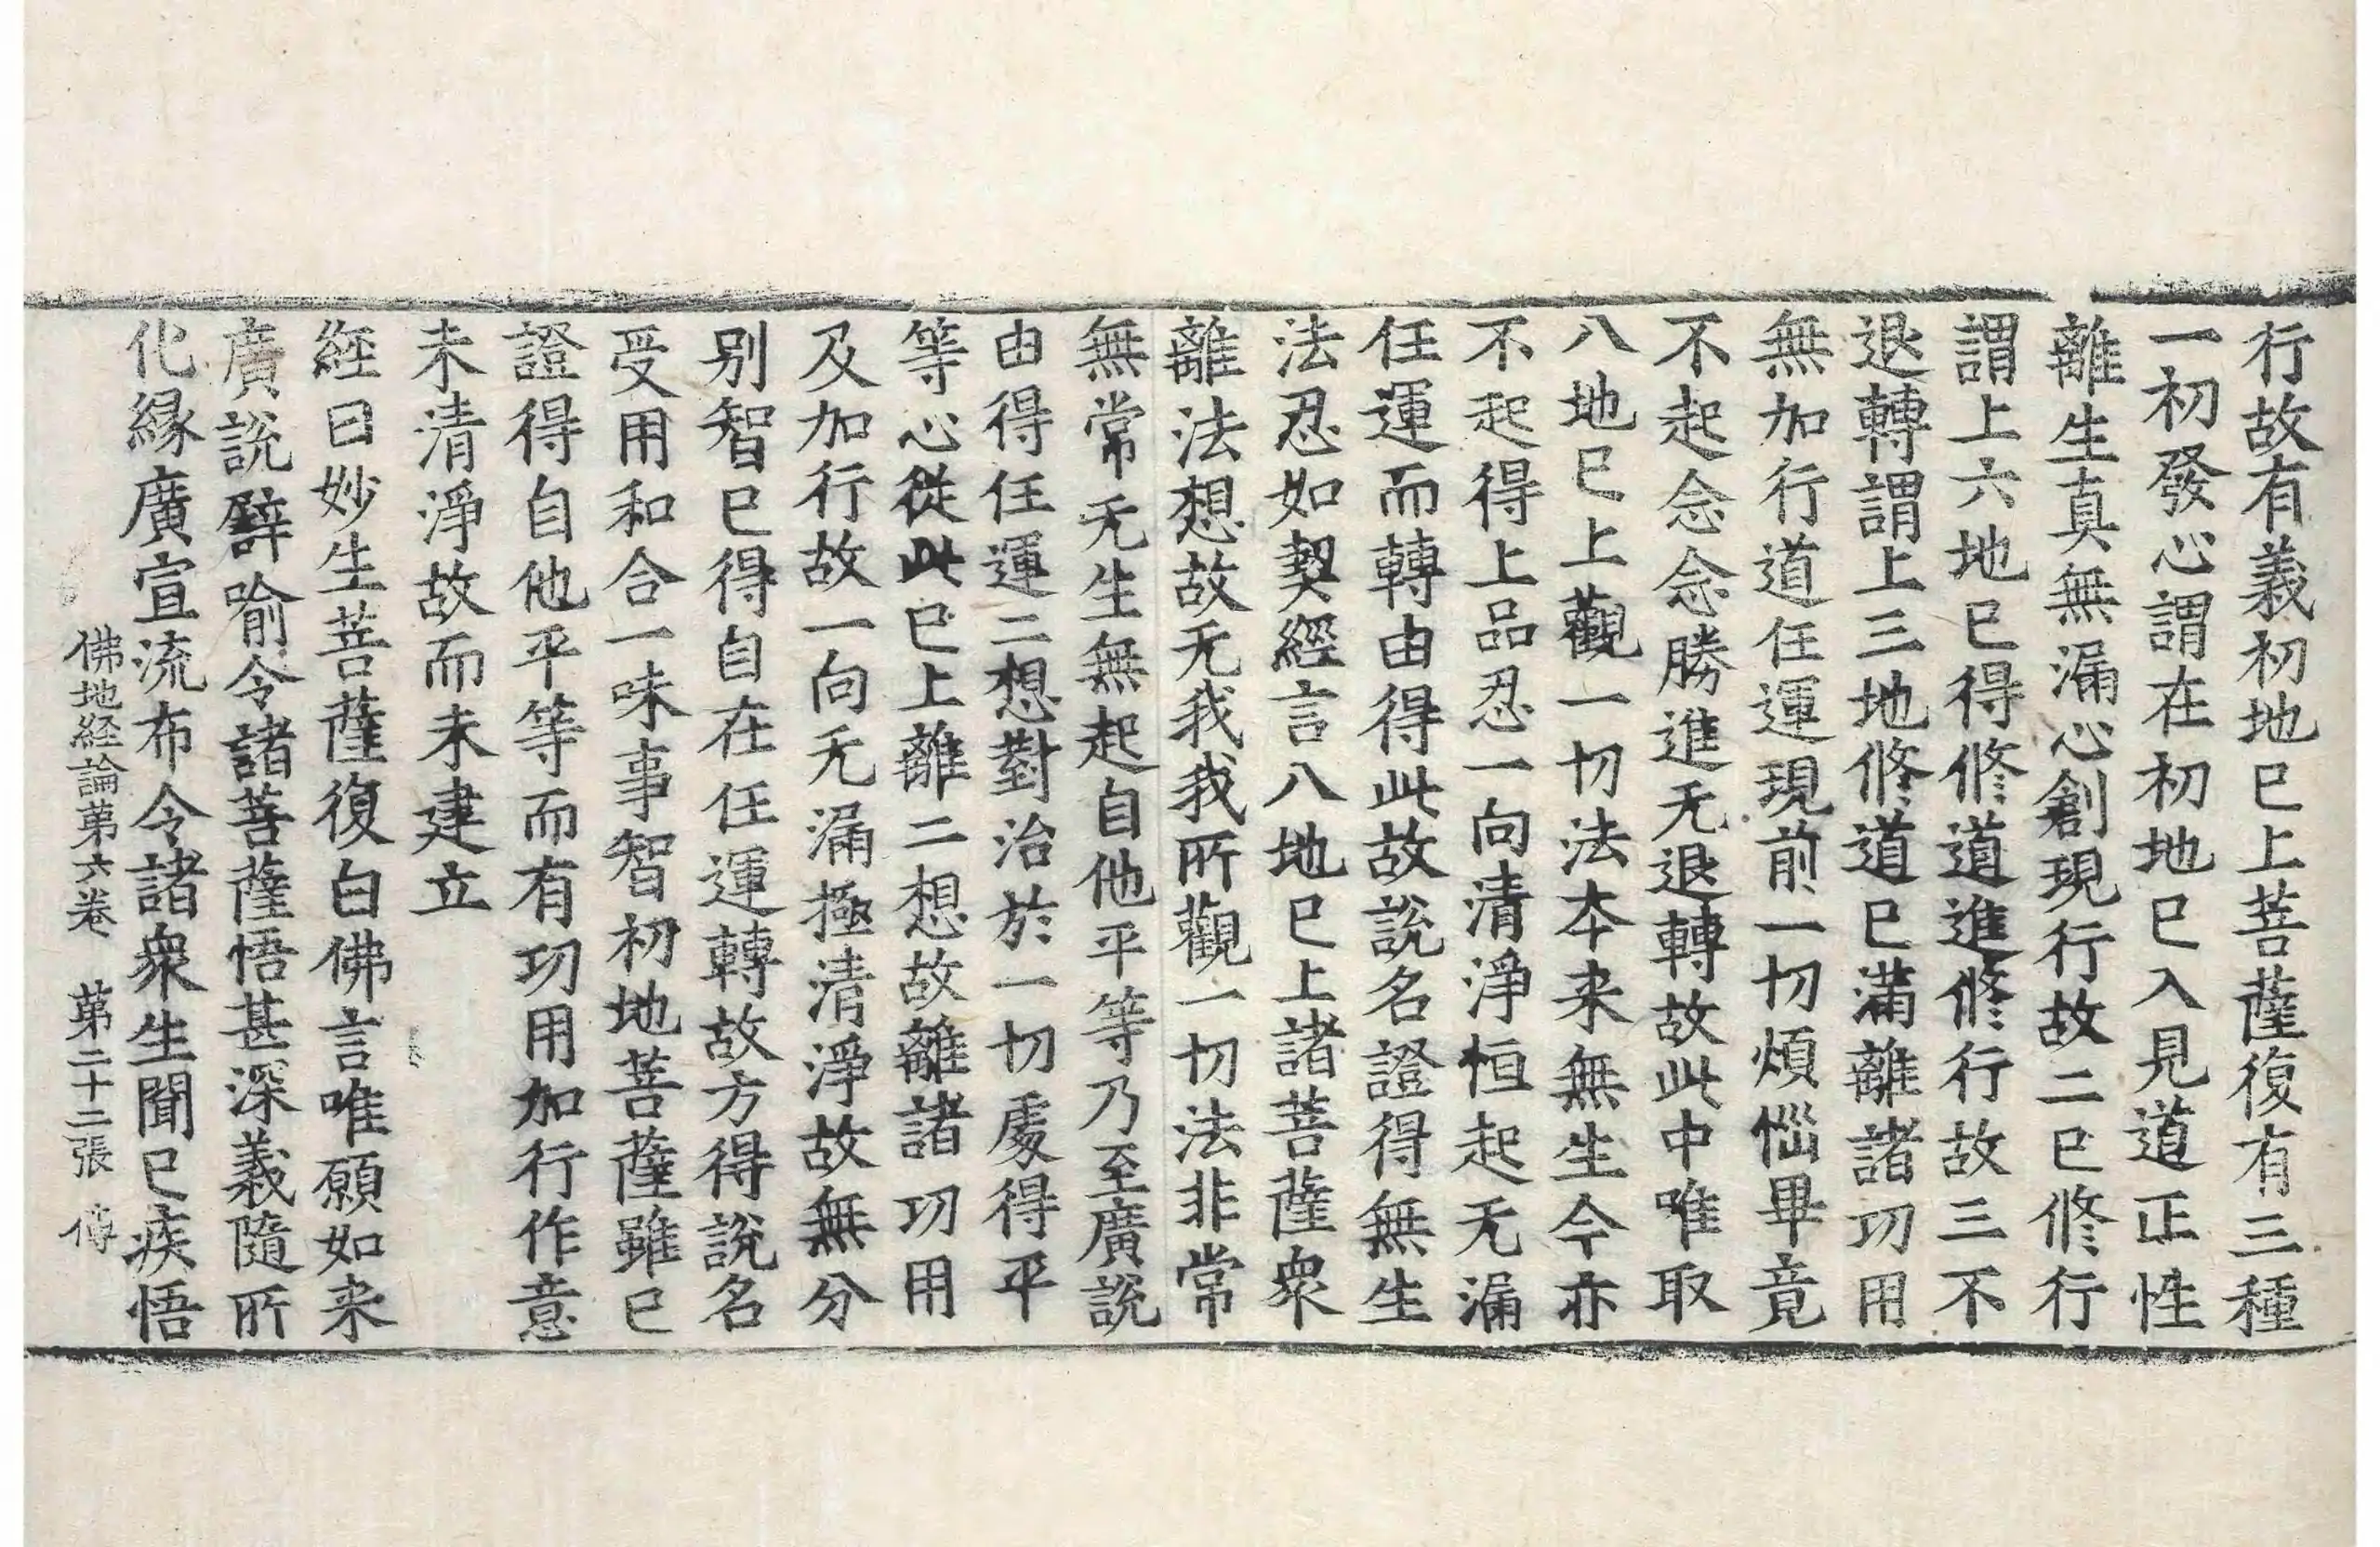 行故有義初地已上菩薩復有三種
一初發心謂在初地已入見道正性
離生真無漏心創現行故二已修行
謂上六地已得修道進修行故三不
退轉謂上三地修道已滿離諸功用
無加行道任運現前一切煩惱畢竟
不起念念勝進无退轉故此中唯取
八地已上觀一切法本来無生今亦
不起得上品忍一向清淨恒起无漏
任運而轉由得此故說名證得無生
法忍如契經言八地已上諸菩薩衆
離法想故无我我所觀一切法非常
無常无生無起自他平等乃至廣說
由得任運二想對治於一切處得平
等心從此已上離二想故離諸功用
及加行故一向无漏極清淨故無分
别智已得自在任運轉故方得說名
受用和合一味事智初地菩薩雖已
證得自他平等而有功用加行作意
未清淨故而未建立
經曰妙生菩薩復白佛言唯願如来
廣說譬喻令諸菩薩悟甚深義隨所
化緣廣宣流布令諸衆生聞已疾悟
佛地経論苐六卷 苐二十二張